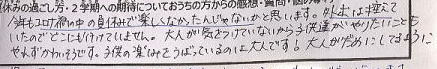 休みの過ごし方・2学期への期待についておうちの方からの感想・質問・
今年もコロナ禍の中の夏休みで楽しくなかったんじゃないかと思います。外出は控えて
いたのでどこにも行けていません。大人が気をつけていないから子供達がやりたいことも
やれずかわいそうです。子供の楽しみをうばっているのは大人です！大人がだめにしてるように